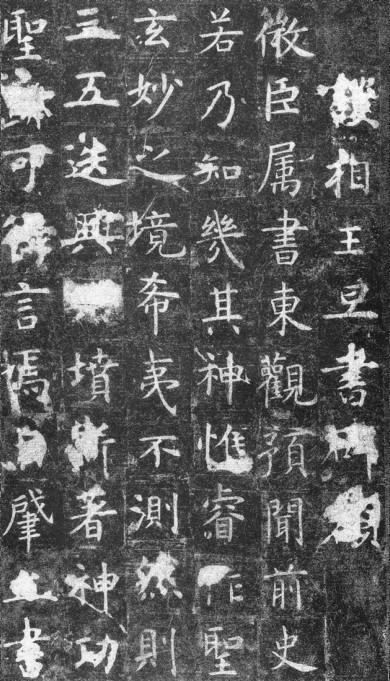 護相王旦書碑額
微臣属書東觀預聞前史
若乃知幾其神惟睿作聖
玄妙之境希夷不測然則
三五迭興墳斯著神功
聖可得言焉肇書